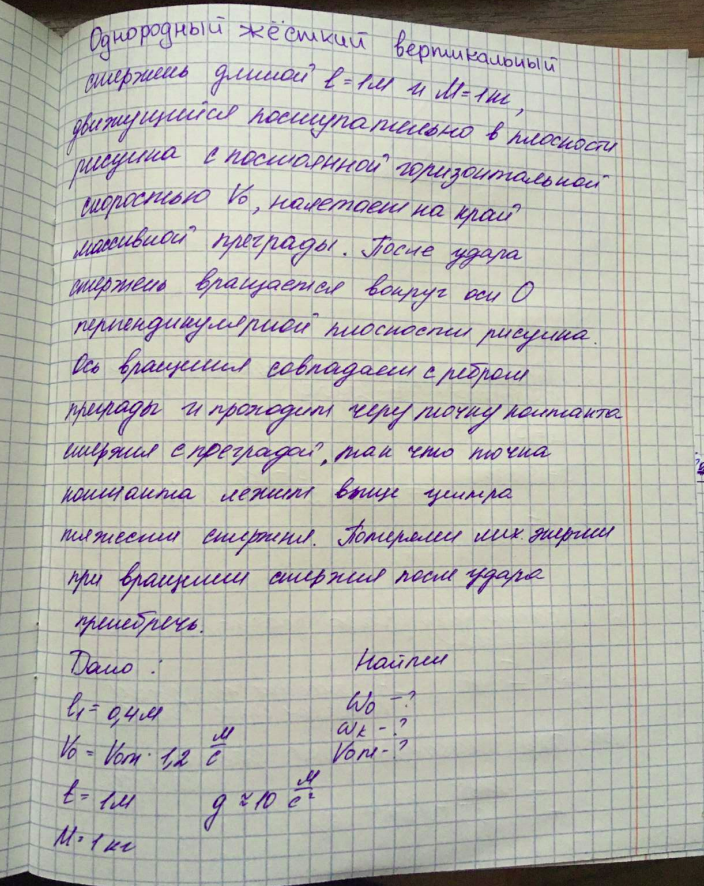 Однородный жёсткий вертикальный
стержень длиной l=1м и M=1кг,
движущийся поступательно в плоскости
рисунка с постоянной горизонтальной
скоростью V₀, налетает на край
массивной преграды. После удара
стержень вращается вокруг оси О
перпендикулярной плоскости рисунка.
Ось вращения совпадает с ребром
преграды и проходит через точку контакта
стержня с преградой, так что точка
контакта лежит выше центра
тяжести стержня. Потерями мех. энергии
при вращении стержня после удара
пренебречь.
Дано : Найти
l₁ = 0,4м ω₀ -?
V₀ = V₀m · 1,2 м/с ωk -?
V₀m -?
l = 1м g ≈ 10 м/с²
M = 1 кг